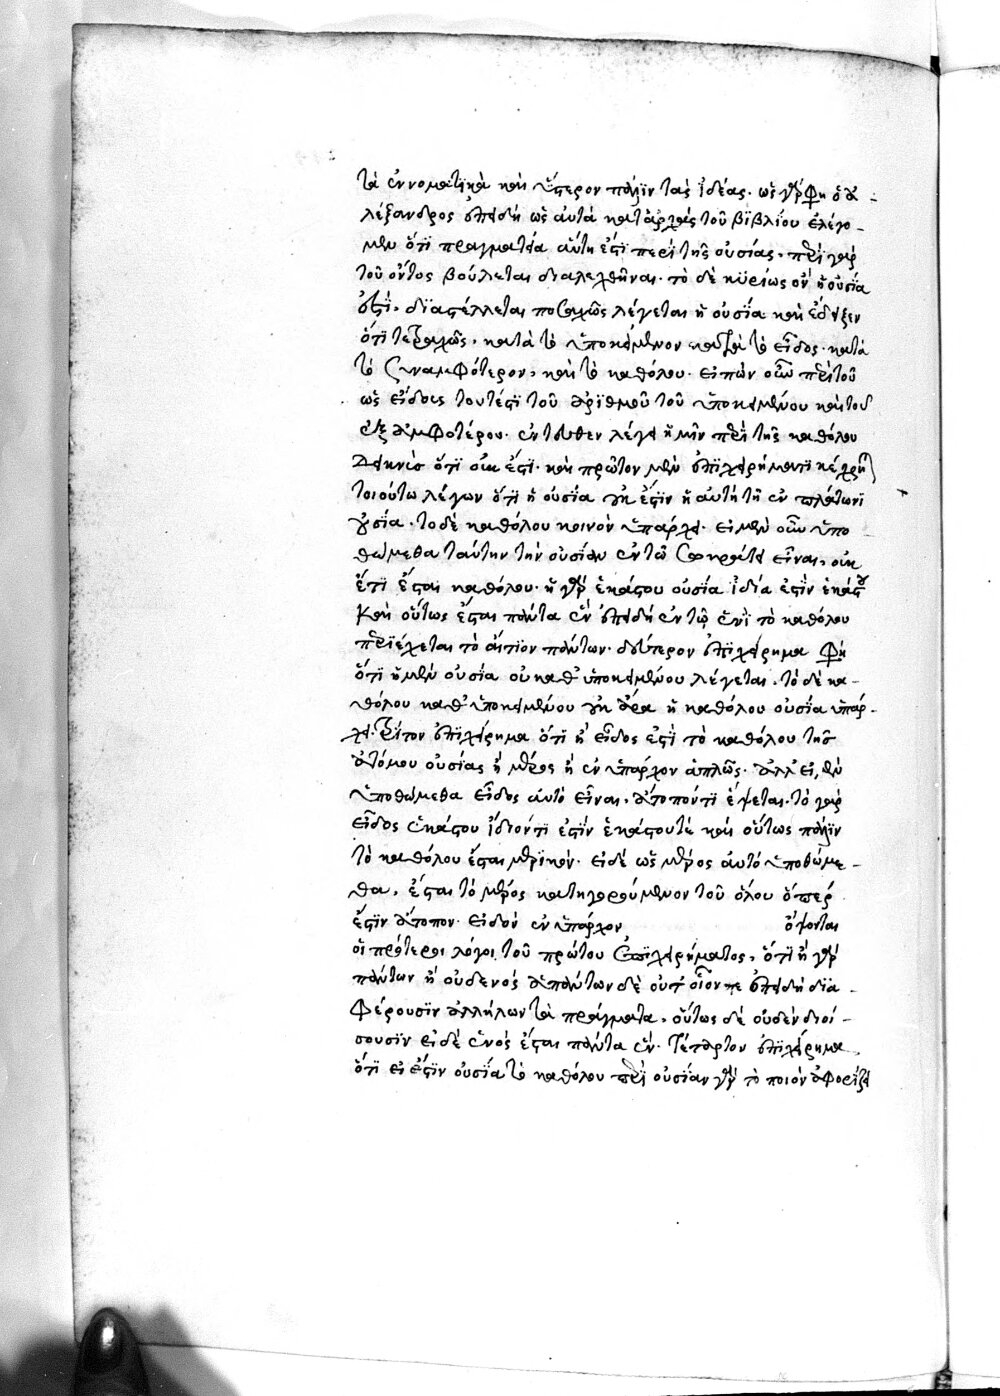 τὰ ἐννοματϊκὰ καὶ ὕστερον πάλϊν τὰς ἰδέας. ὡς γάρ φη ὁ ἀ-
λέξανδρος ἐπειδὴ ὡς αὐτὰ κατ ἀρχὰς τοῦ βϊβλίου ἐλέγο-
μεν ὅτϊ πραγματεία αὕτη ἐστϊ περὶ τῆς οὐσίας. περὶ γὰρ
τοῦ ὄντος βούλεται διαλεχθῆναι. τὸ δὲ κϋρίως ὂν ἡ οὐσΐα
ἐστΐ. δϊαστέλλεται ποσαχῶς λέγεται ἡ οὐσία καὶ ἔδειξεν
ὅτϊ τετραχῶς. κατὰ τὸ ὑποκείμενον κατὰ τὸ εἶδος. κατὰ
τὸ συναμφότερον, καὶ τὸ καθόλου. εἰπὼν οὖν περὶ τοῦ
ὡς εἴδους τουτέστϊ τοῦ ἀρϊθμοῦ τοῦ ὑποκειμένου καὶ τοῦ
ἐξ ἀμφοτέρου. ἐντεῦθεν λέγει ἡμῖν περὶ τῆς καθόλου
δεικνὺς ὅτϊ οὐκ ἔστϊ. καὶ πρῶτον μὲν ἐπϊχειρήματϊ κέχρη
τοιούτω λέγων ὅτϊ ἡ οὐσΐα ἔστϊν ἡ αὐτὴ τῆ ἐν πλάτωνϊ
οὐσΐα. τὸ δὲ καθόλου κοινὸν ὑπάρχει. εἰ μὲν οὖν ὑπο
θώμεθα ταύτην τὴν οὐσίαν ἐν τῶ σωκράτει εἶναι, οὐκ
ἔτϊ ἔσται καθόλου. ἡ γὰρ ἑκάστου οὐσΐα ἰδία ἐστὶν ἑκάστου
καὶ οὕτως ἔσται πάντα ἓν ἐπειδὴ ἐν τῷ ἑνὶ τὸ καθόλου
περϊέχεται τὸ αἴτϊον πάντων. δεύτερον ἐπϊχείρημα φη
ὅτϊ ἡ μὲν οὐσΐα οὐ καθ ὑποκειμένου λέγεται. τὸ δὲ κα-
θόλου καθ ὑποκειμένου ἄρα ἡ καθόλου οὐσία ὑπάρ-
χει. τρίτον ἐπϊχείρημα ὅτϊ ἢ εἶδος ἐστὶ τὸ καθόλου τῆς
ἀτόμου οὐσίας ἢ μέρος ἢ ἐν ὑπάρχον ἁπλῶς. ἀλλ εἰ μὲν
ὑποθώμεθα εἶδος αὐτὸ εἶναι. ἄτοπόν τϊ ἕψεται. τὸ γὰρ
εἶδος ἑκάστου ἴδιόν τϊ ἐστὶν ἑκάστου τὲ καὶ οὕτως πάλϊν
τὸ καθόλου ἔσται μερϊκόν. εἰ δὲ ὡς μέρος αὐτὸ ὑποθώμε-
θα, ἔσται τὸ μέρος κατηγορούμενον τοῦ ὅλου ὅπερ
ἔστϊν ἄτοπον. εἰ δὲ ἐν ὑπάρχον, ὄψονται
οἱ πρότεροι λόγοι τοῦ πρώτου ἐπϊχειρήματος, ὅτϊ ἢ γὰρ
πάντων ἢ οὐδενός ἁπάντων δὲ οὐχ οἷόν τε ἐπειδὴ δϊα-
φέρουσϊν ἀλλήλων τὰ πράγματα, οὕτως δὲ οὐδὲν διοί-
σουσϊν εἰ δὲ ἑνὸς ἔσται πάντα ἕν. τέταρτον ἐπϊχείρημα
ὅτϊ εἰ ἔστϊν οὐσΐα τὸ καθόλου περὶ οὐσΐαν γὰρ τὸ ποιὸν ἀφορίζει